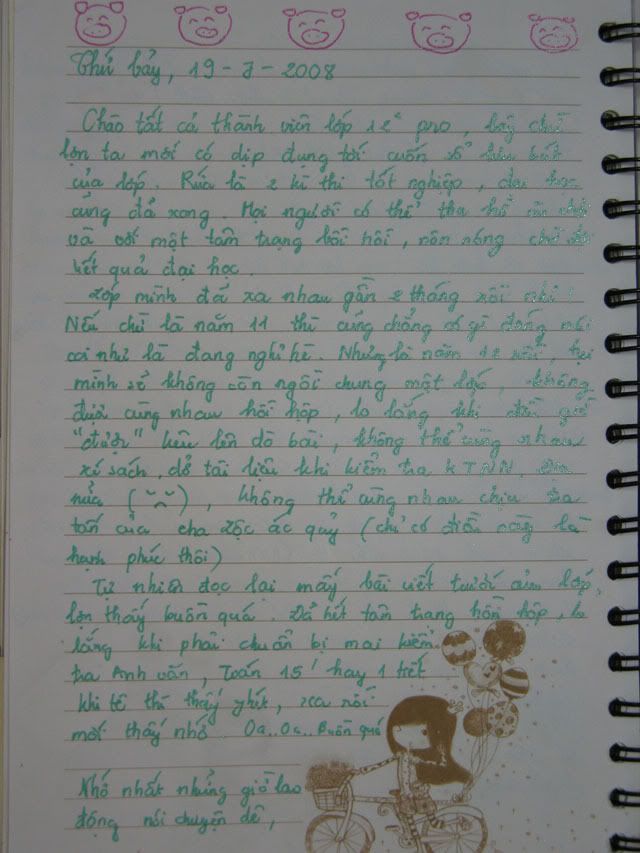 Thứ bảy, 19-7-2008
Chào tất cả thành viên lớp 12⁶ pro, bây chừ
lợn ta mới có dịp đụng tới cuốn sổ lưu bút
của lớp. Rứa là 2 kì thi tốt nghiệp, đại học
cũng đã xong. Mọi người có thể tha hồ ăn chơi
và với một tâm trạng bồi hồi, nôn nóng chờ đợi
kết quả đại học.
Lớp mình đã xa nhau gần 2 tháng rồi nhỉ!
Nếu chỉ là năm 11 thì cũng chẳng có gì đáng nói
coi như là đang nghỉ hè. Nhưng là năm 12 rồi, tụi
mình sẽ không còn ngồi chung một lớp, không
được cùng nhau hồi hộp, lo lắng khi đến giờ
"được" kêu lên dò bài, không thể cùng nhau
xé sách, dở tài liệu khi kiểm tra KTNN, Địa
nữa (˘˘), không thể cùng nhau chịu tra
tấn của cha Lộc ác quỷ (chỉ có điều này là
hạnh phúc thôi)
Tự nhiên đọc lại mấy bài viết trước của lớp,
lợn thấy buồn quá. Đã hết tâm trạng hồi hộp, lo
lắng khi phải chuẩn bị mai kiểm
tra Anh văn, Toán 15' hay 1 tiết
khi tê thì thấy ghét, xa rồi
mới thấy nhớ. Oa..Oa..Buồn quá
Nhớ nhất những giờ lao
động nói chuyện dê,